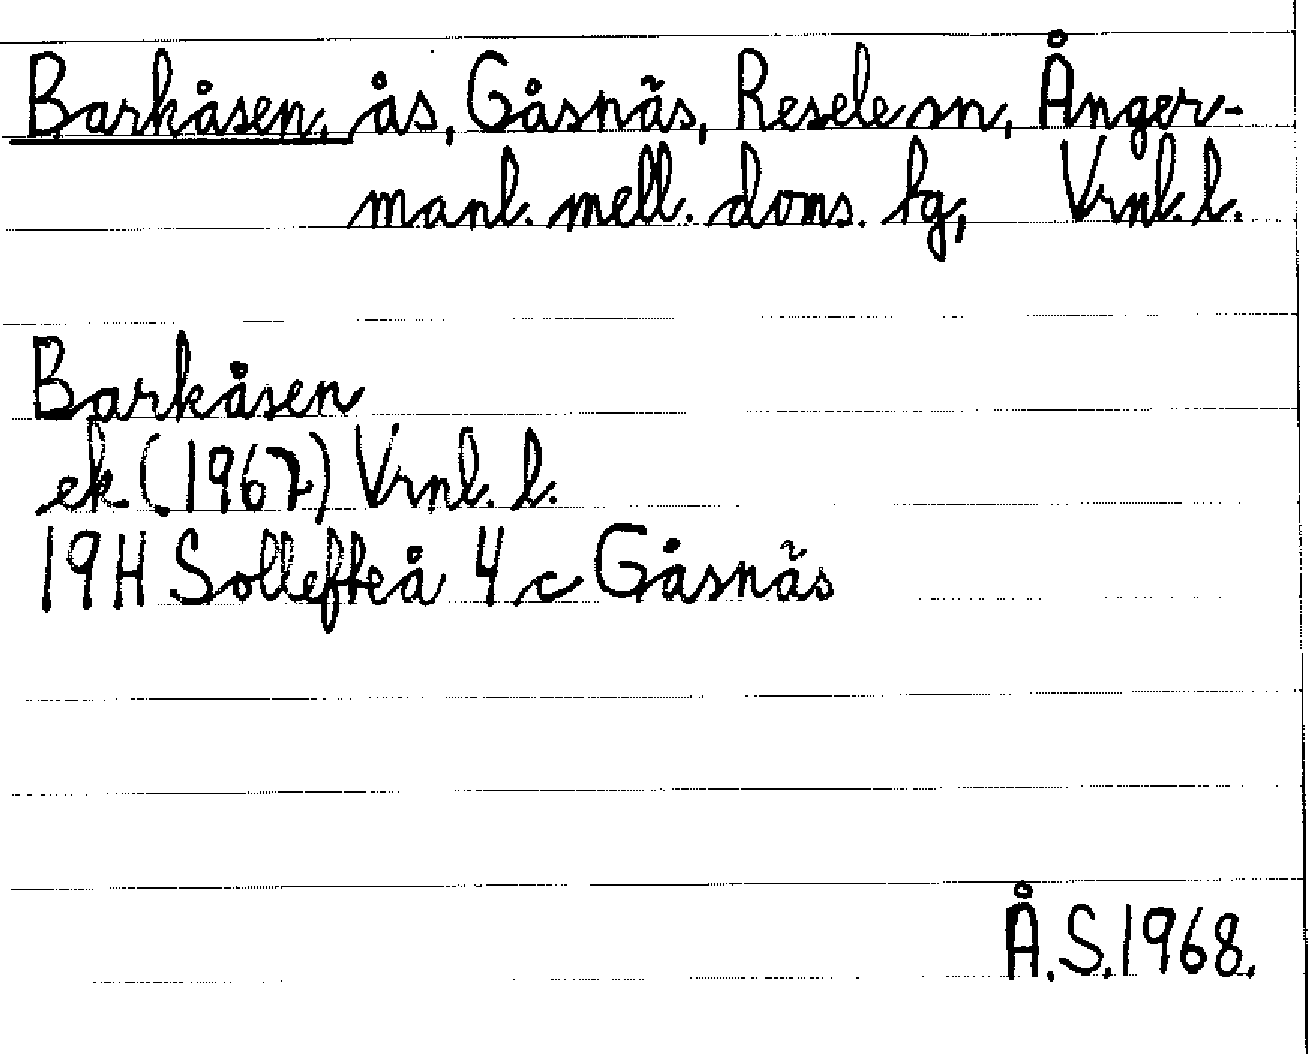 Barkåsen, ås, Gåsnäs, Resele sn, Ånger-
manl. mell. doms. lg, Vrnl. l.
Barkåsen
ek. (1967) Vrnl. l.
19H Sollefteå 4 c Gåsnäs
Å.S.1968.